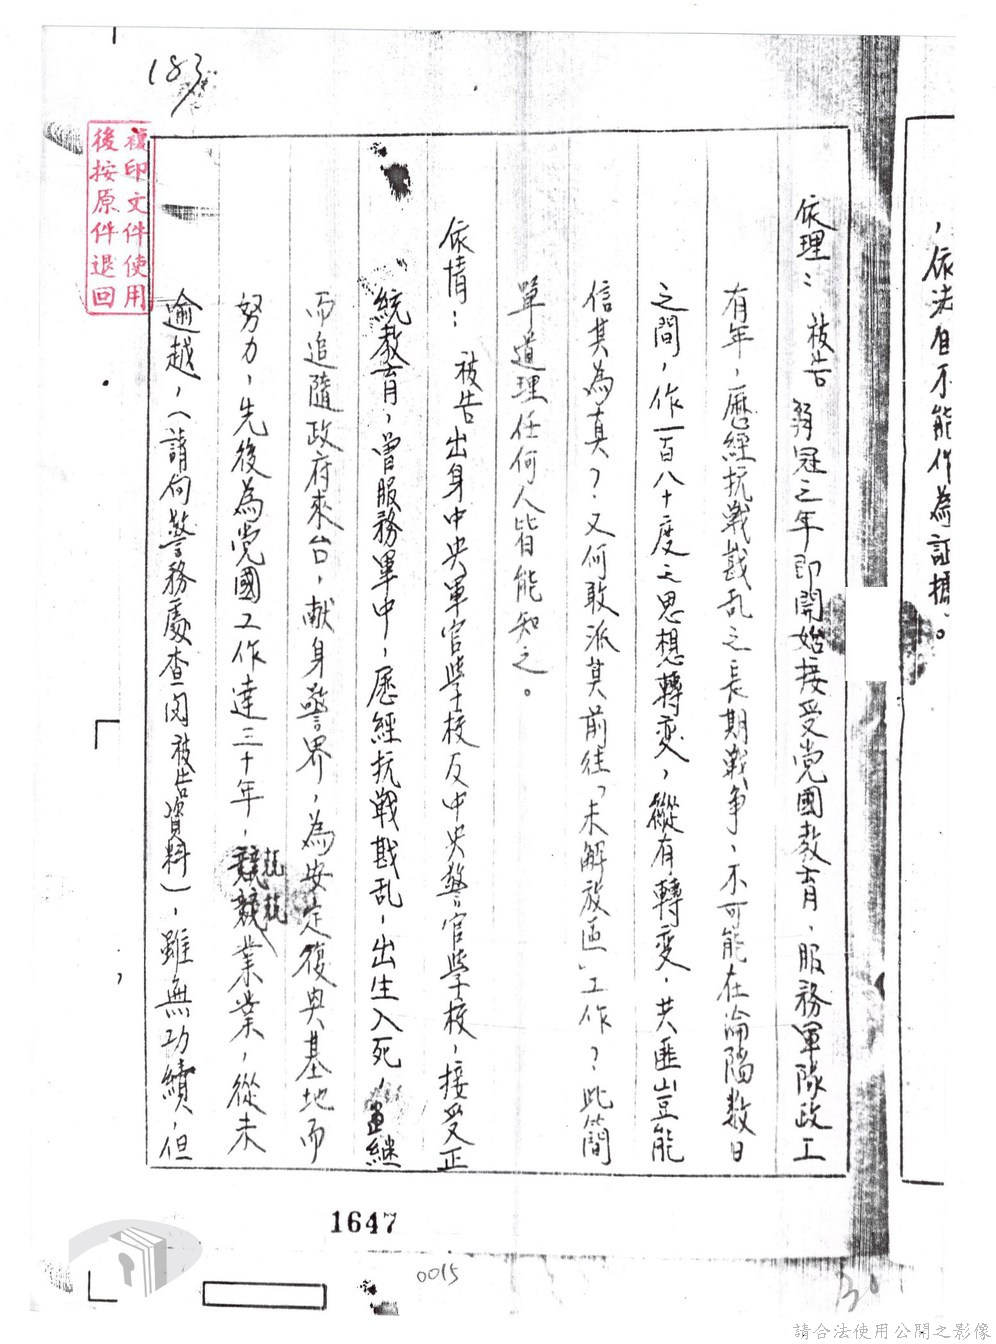 ，依法自不能作為証據。
依理：被告弱冠之年即開始接受党國教育，服務軍隊政工
有年，歷經抗戰戡乱之長期戰爭，不可能在淪陷數日
之間，作一百八十度之思想轉变，縱有轉变，共匪豈能
信其為真？又何敢派其前往「未解放區」工作？此簡
單道理任何人皆能知之。
依情：被告出身中央軍官学校及中央警官学校，接受正
統教育，曾服務軍中，歷經抗戰戡乱，出生入死，繼
而追隨政府來台，献身警界，為安定復興基地而
努力，先後為党國工作達三十年，兢兢業業，從未
逾越，（請向警務處查閱被告資料），雖無功績，但
183
複印文件使用
後按原件退回
1647
0015
30
請合法使用公開之影像